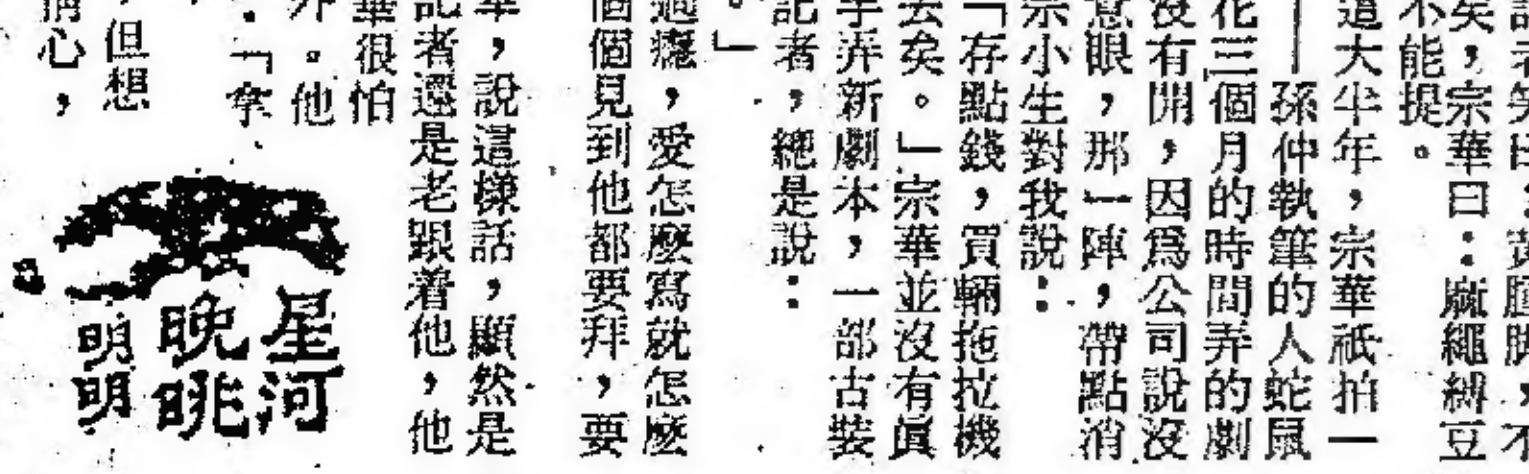 笑曰：黃腫脚，不
矣，宗華曰：麻繩縛豆
不能提。
這大半年，宗華祇拍一
——孫仲執筆的人蛇鼠
花三個月的時間弄的劇
沒有開，因爲公司說沒
意眼，那一陣，帶點消
宗小生對我說：
「存點錢，買輛拖拉機
去矣。」宗華並沒有眞
手弄新劇本，一部古裝
記者，總是說：
。」
過癮，愛怎麼寫就怎麼
個個見到他都要拜，要
華，說這樣話，顯然是
記者還是老跟着他，他
華很怕
外。他
「拿
，但想
心，
星河
晚眺
明明